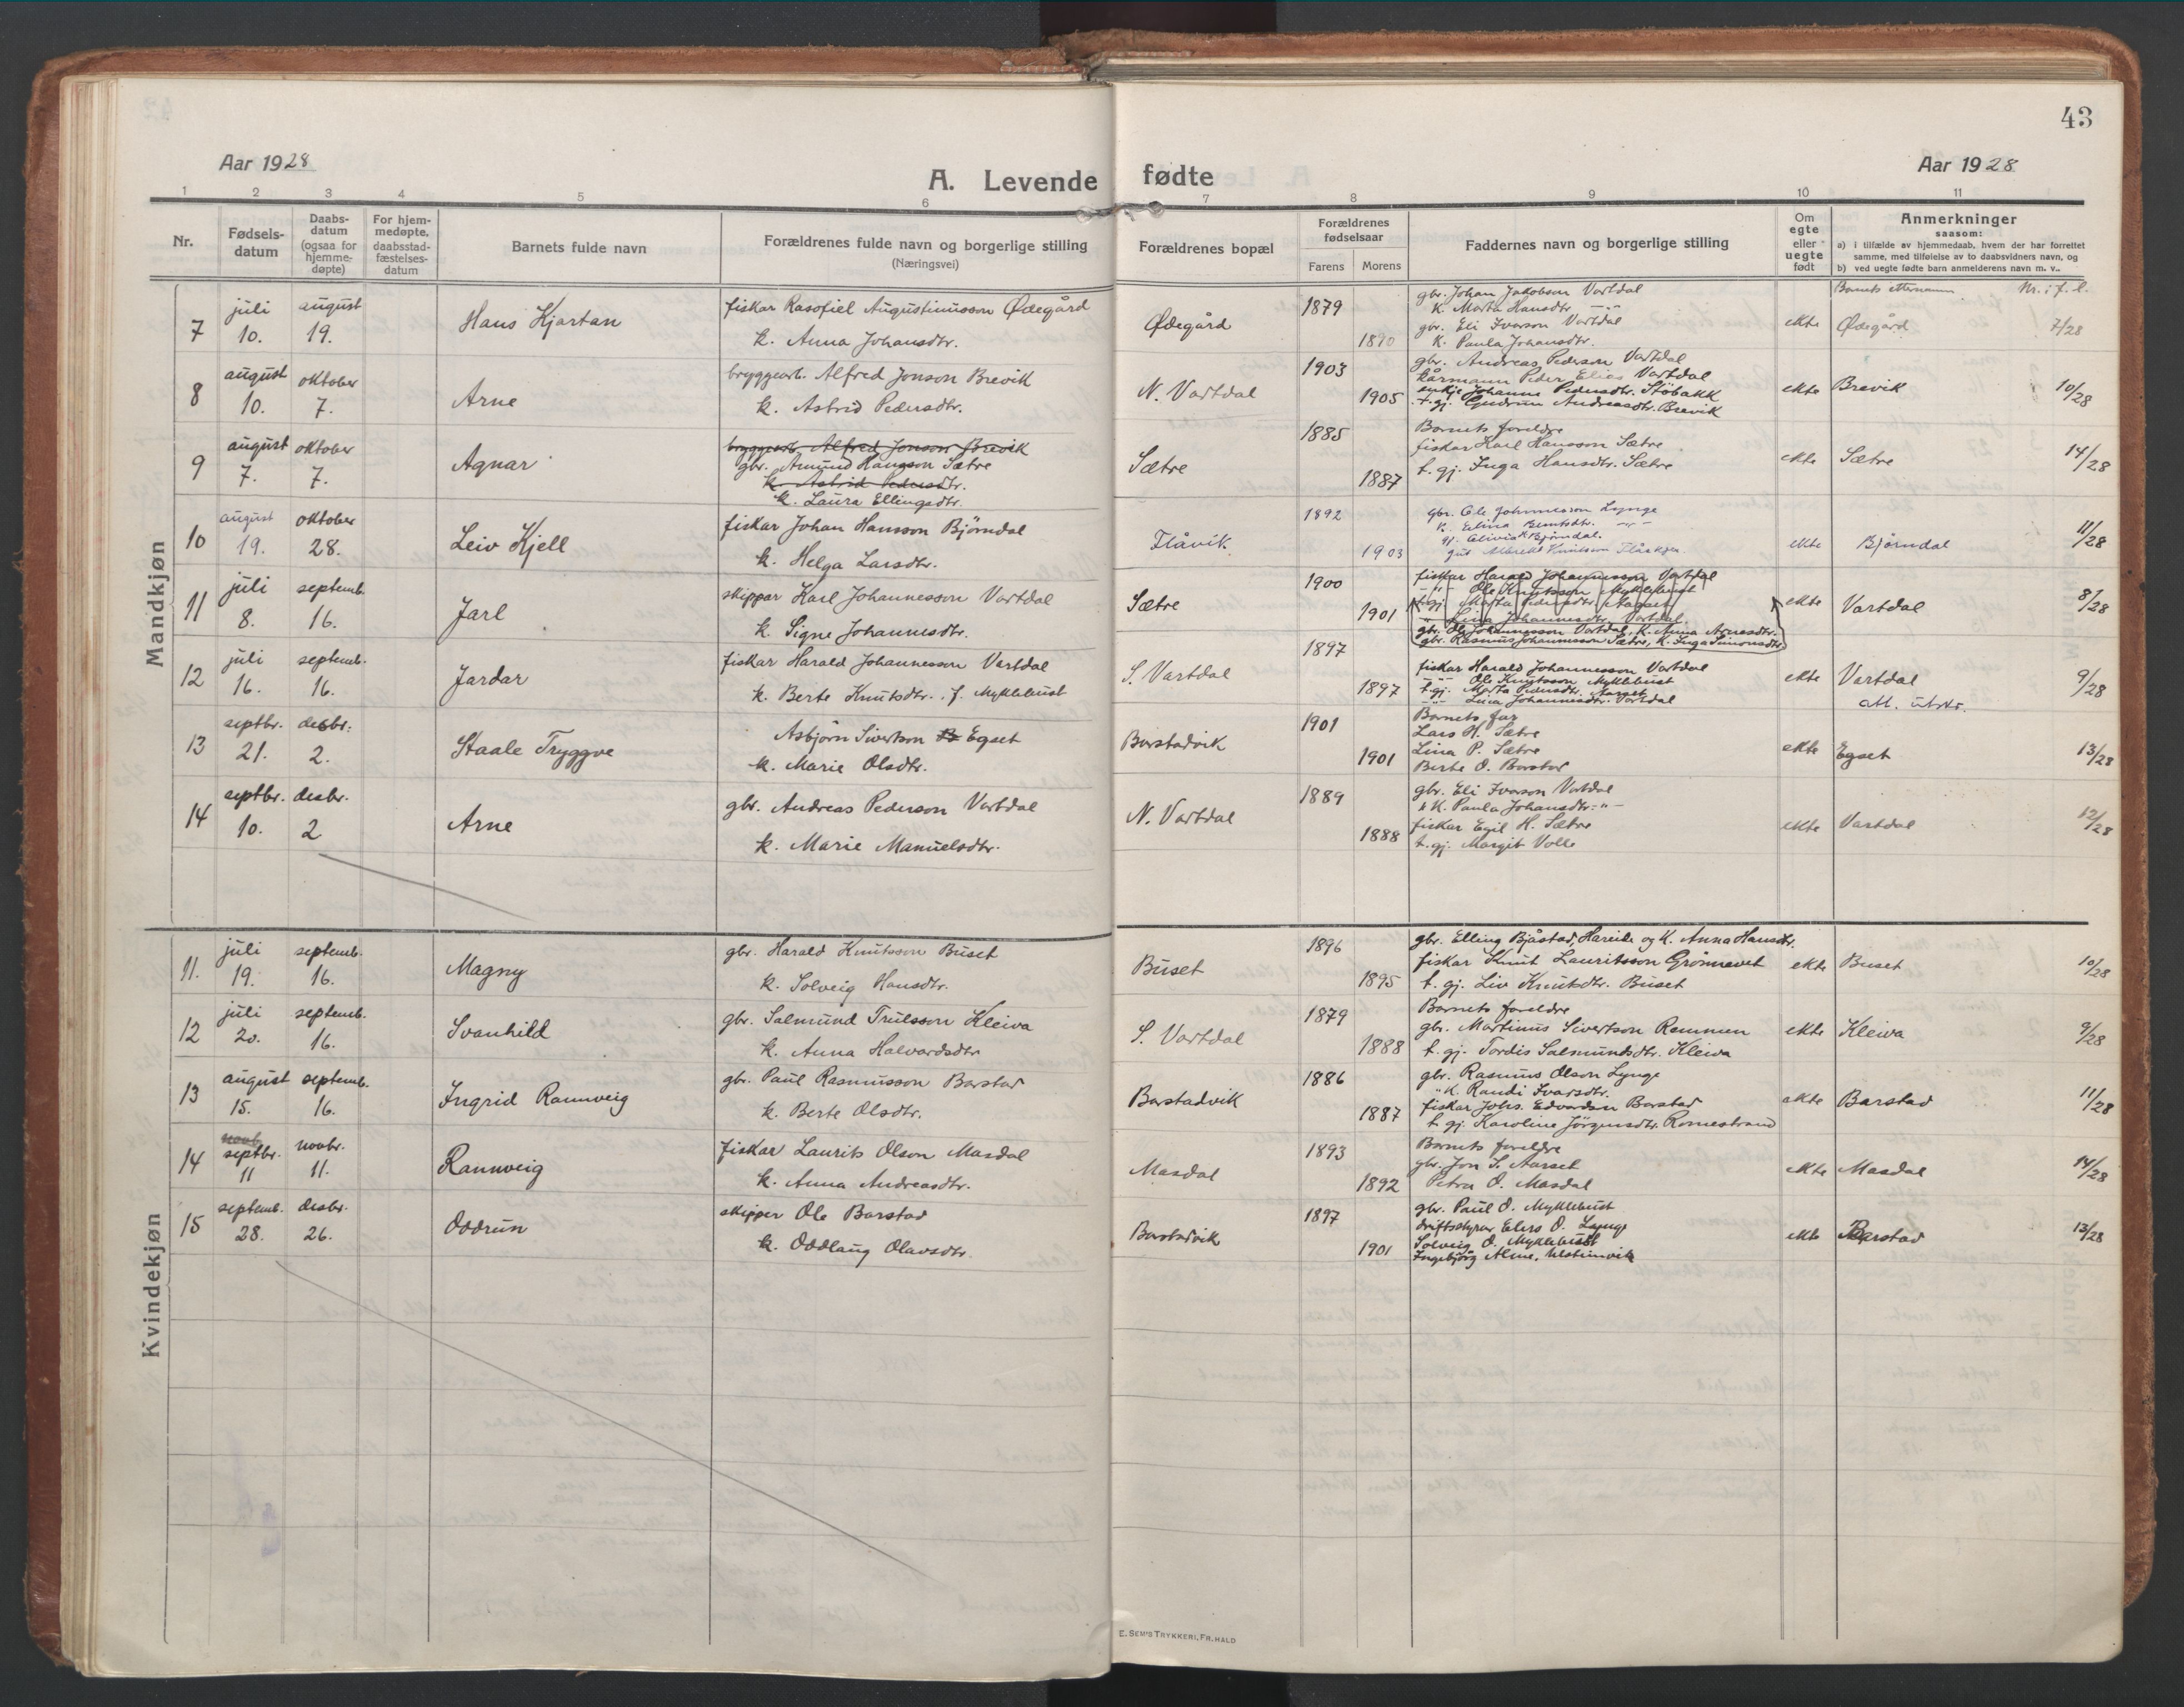 43
Aar 1928
A. Levende fødte
Aar 1928
1 2 3 4 5 6 7 8 9 10 11
Nr.
Fødsels-
datum
Daabs-
datum
(ogsaa for
hjemme-
døpte)
For hjem-
medøpte,
daabsstad-
fæstelses-
datum
Barnets fulde navn
Forældrenes fulde navn og borgerlige stilling
(Næringsvei)
Forældrenes bopæl
Forældrenes
fødselsaar
Farens Morens
Faddernes navn og borgerlige stilling
Om
egte
eller
uegte
født
Anmerkninger
saasom:
a) i tilfælde av hjemmedaab, hvem der har forrettet
samme, med tilføielse av to daabsvidners navn, og
b) ved uegte fødte barn anmelderens navn m. v..
Mandkjøn
Barnets etternamn Nr. i f. l.
7
juli 10.
august 19.
Hans Kjartan
fiskar Rasofiel Augustinusson Ødegård
k. Anna Johansdtr.
Ødegård
1879
1890
gbr. Johan Jakobson Vartdal
K. Marta Hansdtr. -"-
gbr. Eli Ivarson Vartdal
K. Paula Johansdtr.
ekte
Ødegård
7/28
8
august 10.
oktober 7.
Arne
bryggearb. Alfred Jonson Brevik
k. Astrid Pedersdtr.
N. Vartdal
1903
1905
gbr. Andreas Pederson Vartdal
kårmann Peder Elias Vartdal
enkje Johanne Pedersdtr. Støbakk
t. gj. Gudrun Andreasdtr. Brevik
ekte
Brevik
10/28
9
august 7.
oktober 7.
Agnar
bryggearb. Alfred Jonson Brevik
gbr. Amund Hansson Sætre
k. Astrid Pedersdtr.
k. Laura Ellingsdtr.
Sætre
1885
1887
Barnets foreldre
fiskar Karl Hansson Sætre
t. gj. Inga Hansdtr. Sætre
ekte
Sætre
14/28
10
august 19.
oktober 28.
Leiv Kjell
fiskar Johan Hansson Bjørndal
k. Helga Larsdtr.
Flåvik
1892
1903
gbr. Ole Johannesson Lynge
K. Elina Berntsdtr. -"-
gj. Olivia K Bjørndal.
gut Albrekt Knutsson Flåskjer
ekte
Bjørndal
11/28
11
juli 8.
septemb. 16.
Jarl
skipper Karl Johannesson Vartdal
k. Signe Johannesdtr.
Sætre
1900
1901
fiskar Harald Johannesson Vartdal
-"- Ole Knutsson Myklebust
t. gj. Marta Pedersdtr. Aarset
-"- Lina Johannesdtr. Vartdal.
gbr. Ole Johannesson Vartdal, K. Anna Arnesdtr.
gbr. Rasmus Johannesson Sætre, K. Inga Simonsdtr.
ekte
Vartdal
8/28
12
juli 16.
septemb. 16.
Jardar
fiskar Harald Johannesson Vartdal
k. Berte Knutsdtr. f. Myklebust
S. Vartdal
1897
1897
fiskar Harald Johannesson Vartdal
-"- Ole Knutsson Myklebust
t. gj. Marta Pedersdtr. Aarset
-"- Lina Johannesdtr. Vartdal
ekte
Vartdal
att. utskr.
9/28
13
septbr. 21.
desbr. 2.
Staale Tryggve
Asbjørn Sivertson Egset
k. Marie Olsdtr.
Barstadvik
1901
1901
Barnets far
Lars H. Sætre
Lina P. Sætre
Berte O. Barstad
ekte
Egset
13/28
14
septbr. 10.
desbr. 2
Arne
gbr. Andreas Pederson Vartdal
k. Marie Manuelsdtr.
N. Vartdal
1889
1888
gbr. Eli Ivarson Vartdal
k. Paula Johansdtr. -"-
fiskar Egil H. Sætre
t. gj. Margit Volle
ekte
Vartdal
12/28
Kvindekjøn
11.
juli 19.
septemb. 16.
Magny
gbr. Harald Knutsson Buset
k. Solveig Hansdtr.
Buset
1896
1895
gbr. Elling Bjåstad, Hareide og K. Anna Hansdtr.
fiskar Knut Lauritsson Grønnevet
t. gj. Liv Knutsdtr. Buset
ekte
Buset
10/28
12
juli 20.
septemb. 16.
Svanhild
gbr. Salmund Trulsson Kleiva
k. Anna Halvardsdtr
S. Vartdal
1879
1888
Barnets foreldre
gbr. Martinus Sivertson Remmen
t. gj. Tordis Salmundsdtr. Kleiva
ekte
Kleiva
9/28
13
august 15.
septemb. 16.
Ingrid Rannveig
gbr. Paul Rasmusson Barstad
k. Berte Olsdtr.
Barstadvik
1886
1887
gbr. Rasmus Olson Lynge
" K. Randi Ivarsdtr.
fiskar Johs. Edvardsen Barstad
t. gj. Karoline Jørgensdtr. Romestrand
ekte
Barstad
11/28
14
novb.
septbr. 11
novbr. 11.
Rannveig
fiskar Laurits Olson Masdal
k. Anna Andreasdtr.
Masdal
1893
1892
Barnets foreldre
gbr. Jon S. Aarset
Petra O. Masdal
ekte
Masdal
14/28
15
septemb. 28.
desbr. 26.
Oddrun
skipper Ole Barstad
k. Oddlaug Olavsdtr.
Barstadvik
1897
1901
gbr. Paul O. Myklebust
driftsstyrar Elias O. Lynge
Solveig O. Myklebust
Ingebjørg Alme,
ekte
Barstad
13/28
E. SEM'S TRYKKERI, FR.HALD